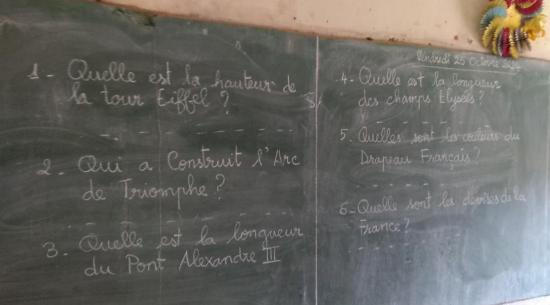 1- Quelle est la hauteur de
la tour Eiffel ?
2- Qui a Construit l'Arc
de Triomphe ?
3- Quelle est la longueur
du Pont Alexandre III
Vendredi 25 Octobre
4- Quelle est la longueur
des champs Elysées ?
5- Quelles sont les couleurs du
Drapeau Français ?
6- Quelle sont la devises de la
France ?